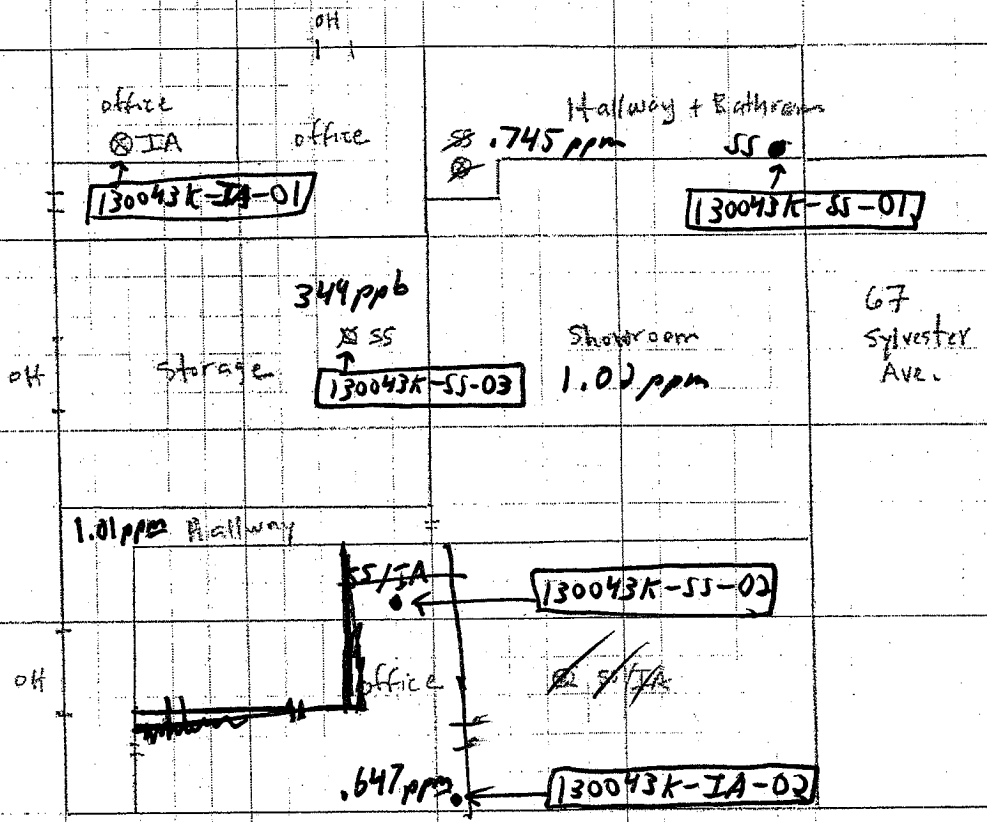 OH
office
⊗ IA
130043K-IA-01
office
Hallway + Bathroom
SS .745 ppm
SS
130043K-SS-01
344 ppb
SS
Storage
130043K-SS-03
Showroom
1.02 ppm
67
Sylvester
Ave.
OH
1.01 ppm Hallway
SS/IA
130043K-SS-02
office
SS/IA
OH
.647 ppm
130043K-IA-02